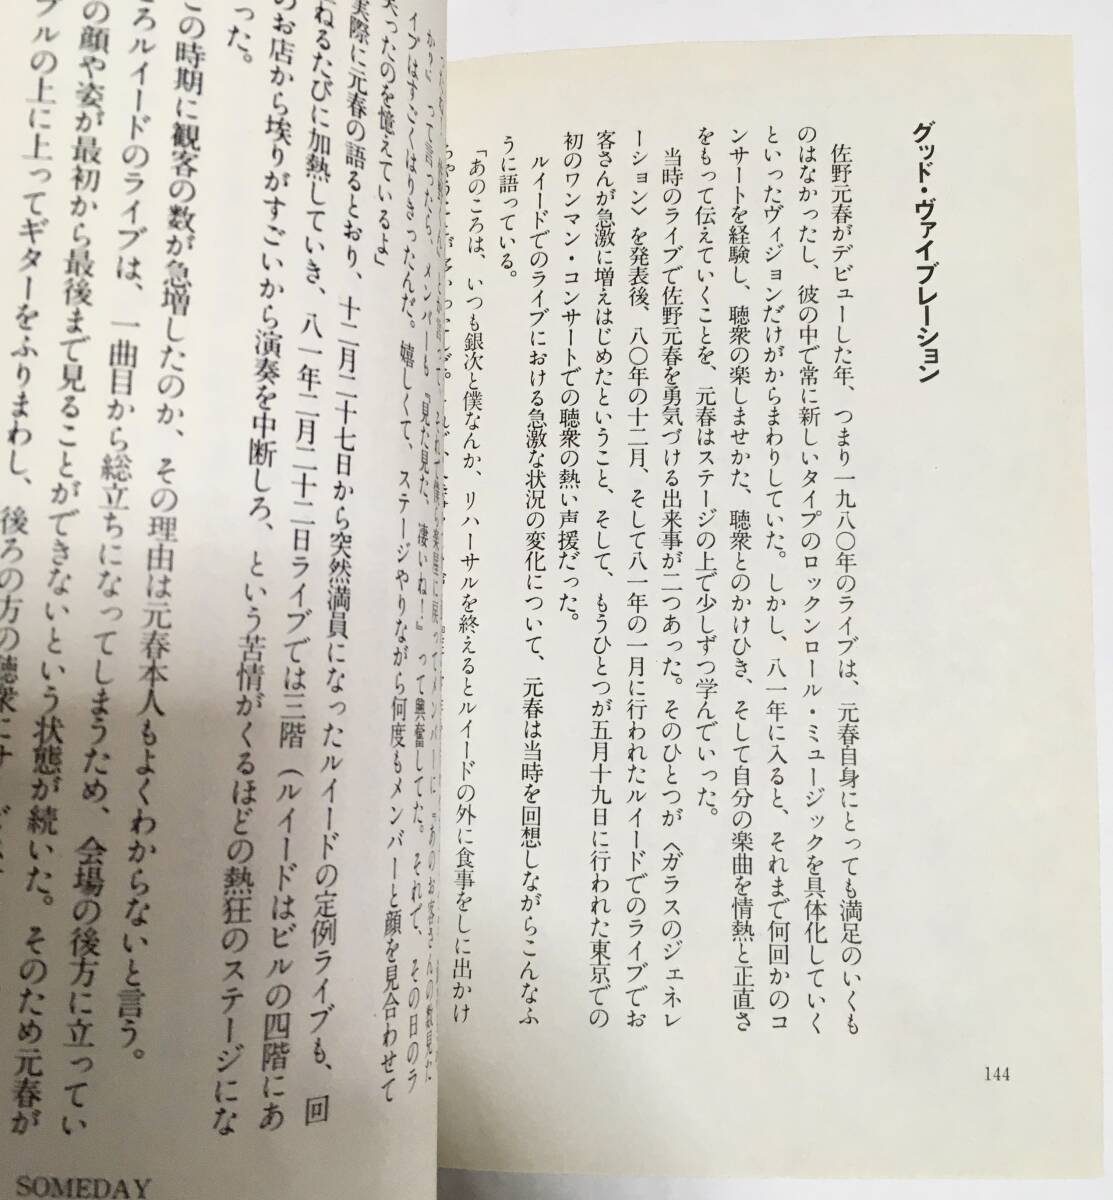 グッド・ヴァイブレーション
佐野元春がデビューした年、つまり一九八〇年のライブは、元春自身にとっても満足のいくも
のはなかったし、彼の中で常に新しいタイプのロックンロール・ミュージックを具体化していく
といったヴィジョンだけがからまわりしていた。しかし、八一年に入ると、それまで何回かのコ
ンサートを経験し、聴衆の楽しませかた、聴衆とのかけひき、そして自分の楽曲を情熱と正直さ
をもって伝えていくことを、元春はステージの上で少しずつ学んでいった。
当時のライブで佐野元春を勇気づける出来事が二つあった。そのひとつが〈ガラスのジェネレ
ーション〉を発表後、八〇年の十二月、そして八一年の一月に行われたルイードでのライブでお
客さんが急激に増えはじめたということ、そして、もうひとつが五月十九日に行われた東京での
初のワンマン・コンサートでの聴衆の熱い声援だった。
ルイードでのライブにおける急激な状況の変化について、元春は当時を回想しながらこんなふ
うに語っている。
「あのころは、いつも銀次と僕なんか、リハーサルを終えるとルイードの外に食事をしに出かけ
144
って言ったら、メンバーも『見た見た、凄いね！』って興奮してた。それで、その日のラ
イブはすごくはりきったんだ。嬉しくて、ステージやりながら何度もメンバーと顔を見合わせて
笑ったのを憶えているよ」
実際に元春の語るとおり、十二月二十七日から突然満員になったルイードの定例ライブも、回
ねるたびに加熱していき、八一年二月二十二日ライブでは三階（ルイードはビルの四階にあ
のお店から埃りがすごいから演奏を中断しろ、という苦情がくるほどの熱狂のステージにな
った。
この時期に観客の数が急増したのか、その理由は元春本人もよくわからないと言う。
ろルイードのライブは、一曲目から総立ちになってしまうため、会場の後方に立ってい
の顔や姿が最初から最後まで見ることができないという状態が続いた。そのため元春が
ブルの上に上ってギターをふりまわし、後ろの方の聴衆に
SOMEDAY